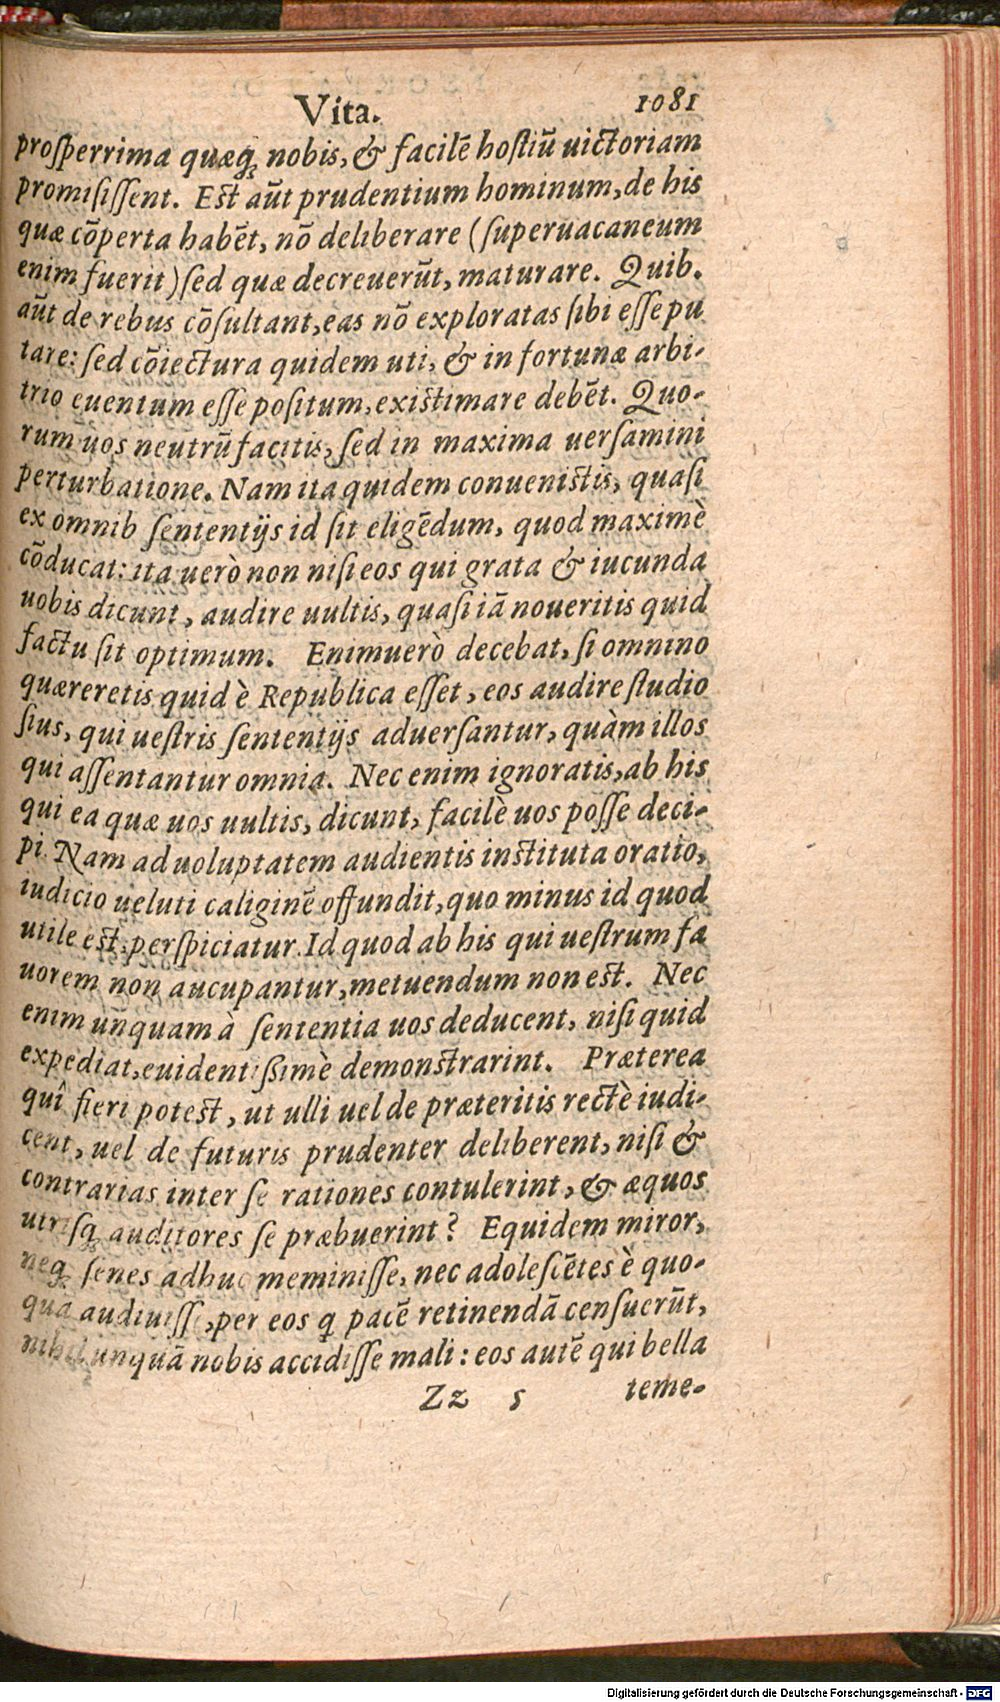 Vita. 1081
proſperrima quæq; nobis, & facilē hoſtiū uictoriam
promiſiſſent. Est aūt prudentium hominum, de his
quæ cōperta habēt, nō deliberare (ſuperuacaneum
enim fuerit) ſed quæ decreuerūt, maturare. Quib.
aūt de rebus cōſultant, eas nō exploratas ſibi eſſe pu
tare: ſed cōiectura quidem uti, & in fortunæ arbi-
trio euentum eſſe poſitum, existimare debēt. Quo-
rum uos neutrū facitis, ſed in maxima uerſamini
perturbatione. Nam ita quidem conuenistis, quaſi
ex omnib ſententijs id ſit eligēdum, quod maximè
cōducat: ita uerò non niſi eos qui grata & iucunda
uobis dicunt, audire uultis, quaſi iā noueritis quid
factu ſit optimum. Enimuerò decebat, ſi omnino
quæreretis quid è Republica eſſet, eos audire ſtudio
ſius, qui ueſtris ſententijs aduerſantur, quàm illos
qui aſſentantur omnia. Nec enim ignoratis, ab his
qui ea quæ uos uultis, dicunt, facilè uos poſſe deci-
pi. Nam ad uoluptatem audientis instituta oratio,
iudicio ueluti caliginē offundit, quo minus id quod
utile est, perſpiciatur. Id quod ab his qui ueſtrum fa
uorem non aucupantur, metuendum non est. Nec
enim unquam à ſententia uos deducent, niſi quid
expediat, euidentißimè demonstrarint. Præterea
quî fieri potest, ut ulli uel de præteritis rectè iudi-
cent, uel de futuris prudenter deliberent, niſi &
contrarias inter ſe rationes contulerint, & æquos
utriſq; auditores ſe præbuerint? Equidem miror,
neq; ſenes adhuc meminiſſe, nec adoleſcētes è quo-
quā audiuiſſe, per eos q pacē retinendā cenſuerūt,
nihil unquā nobis accidiſſe mali: eos autē qui bella
Zz 5 teme-
Digitalisierung gefördert durch die Deutsche Forschungsgemeinschaft - DFG